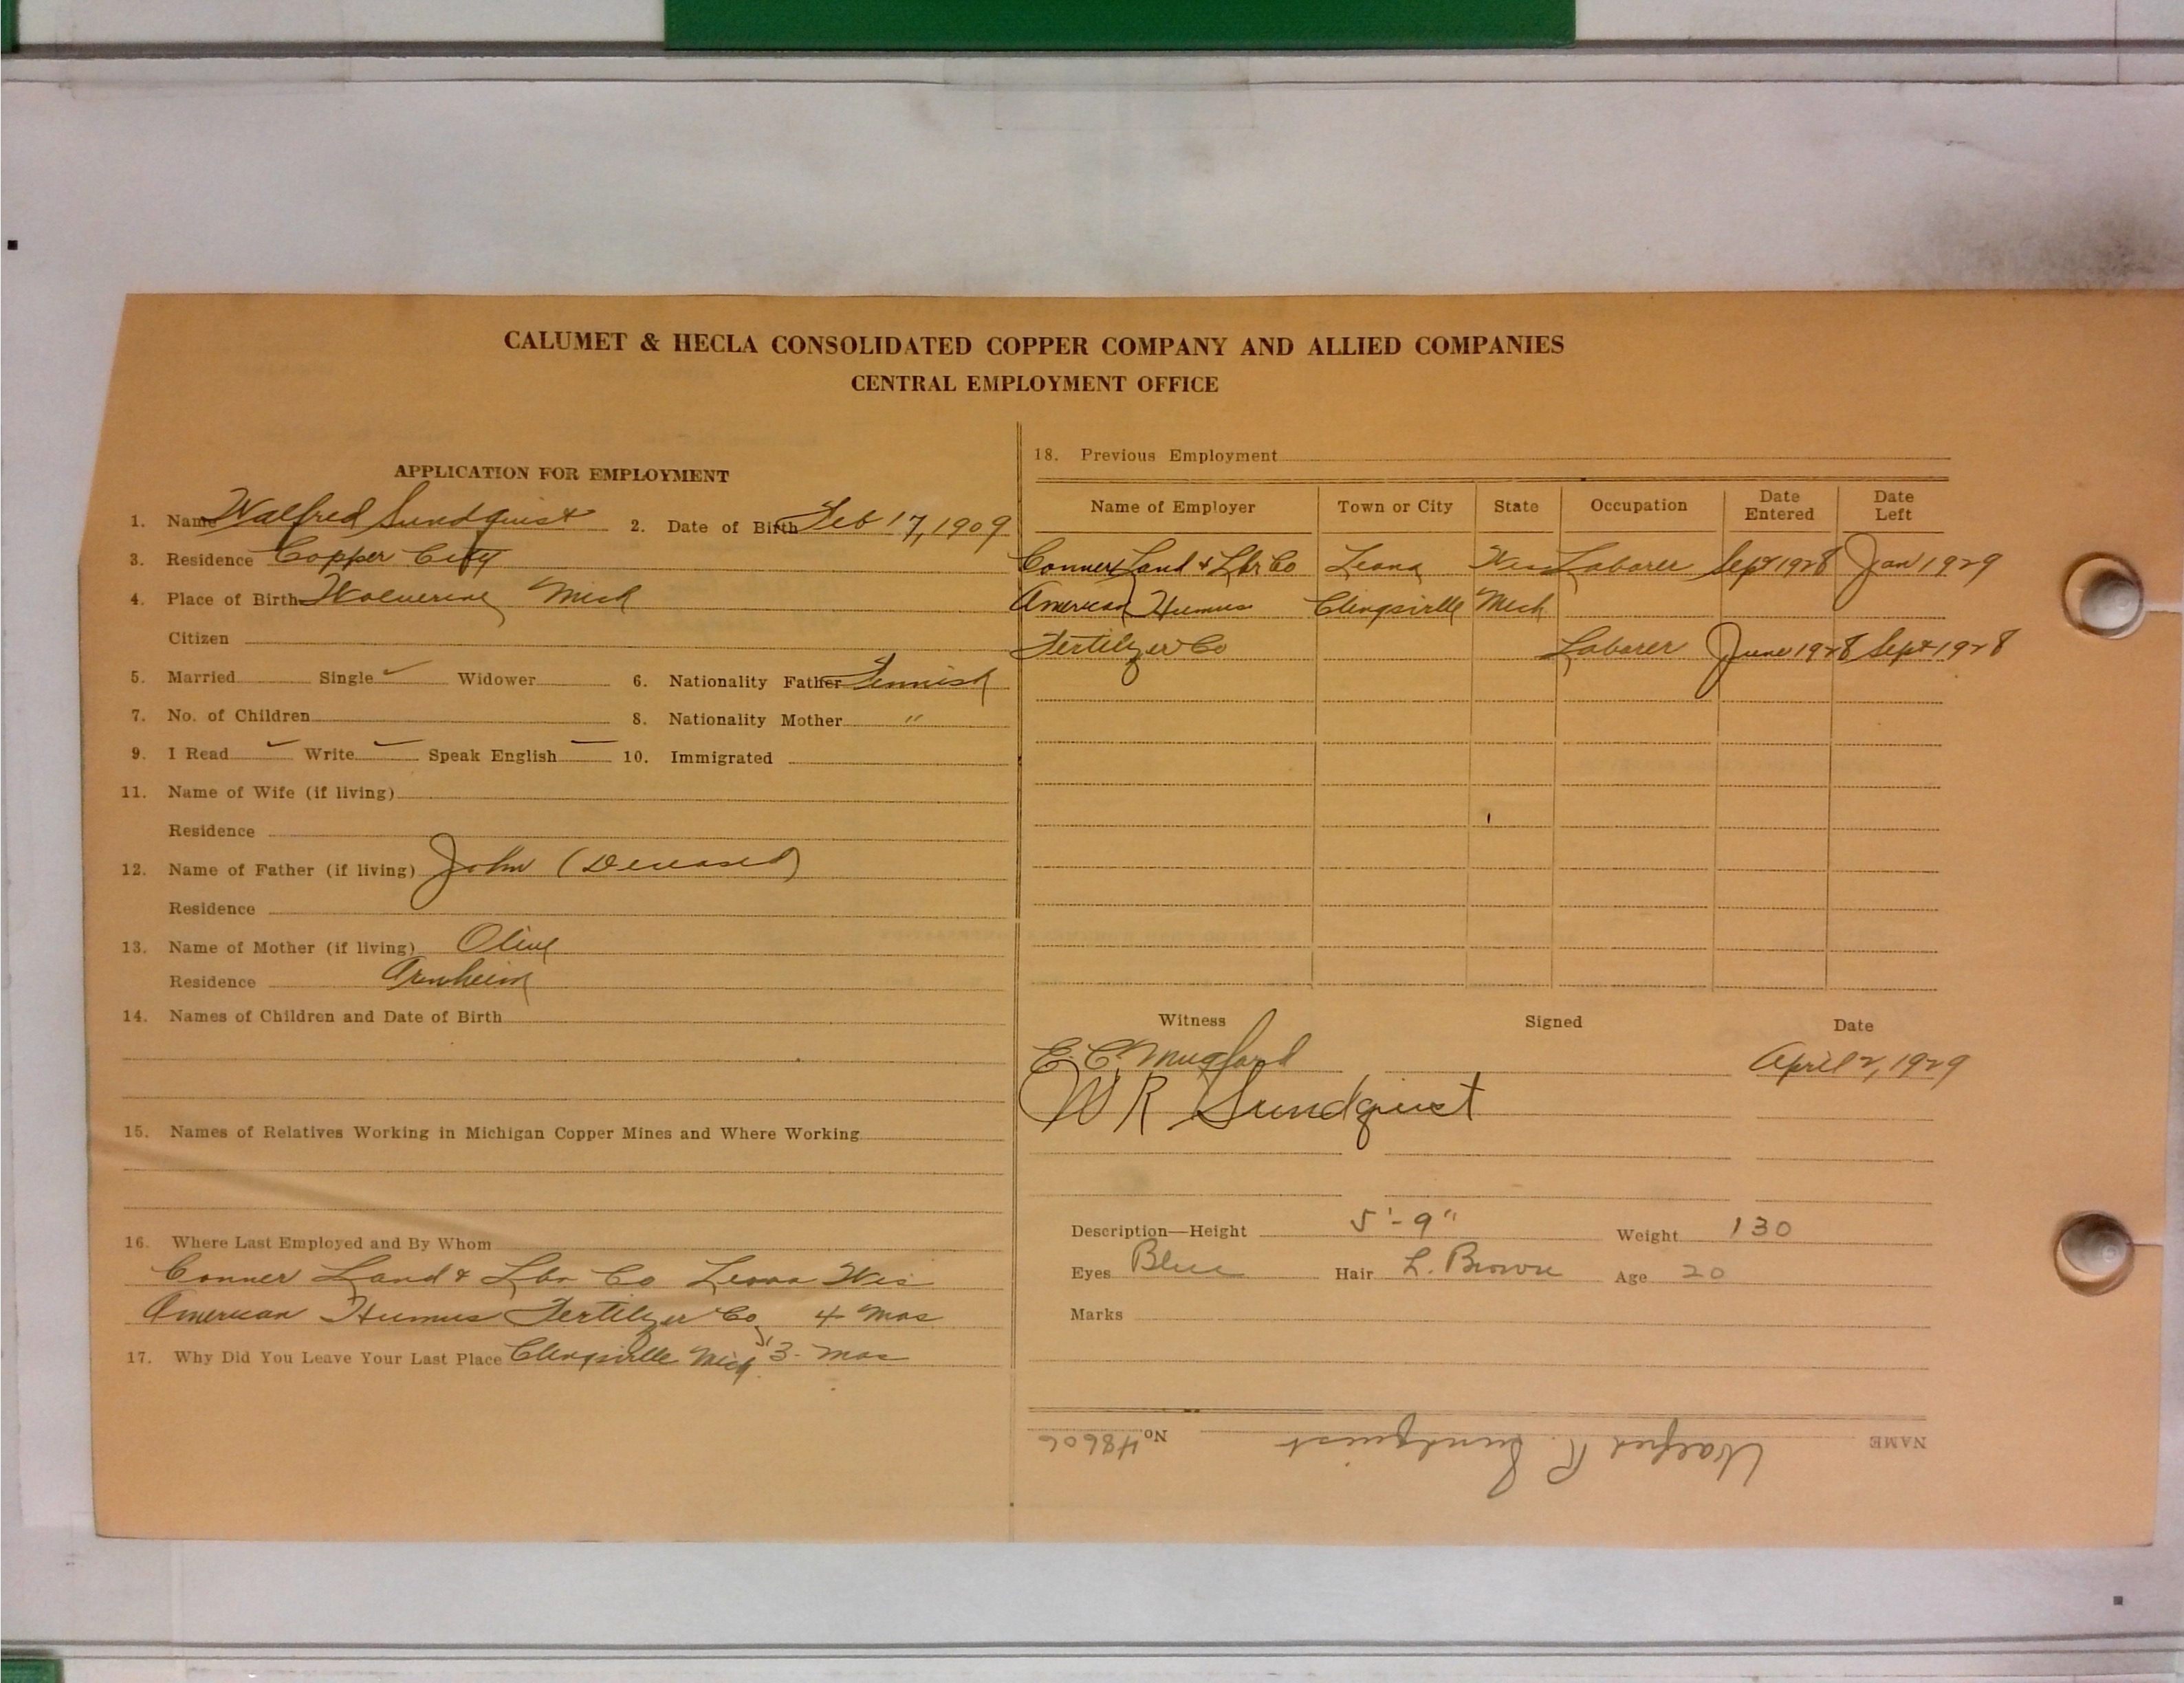 CALUMET & HECLA CONSOLIDATED COPPER COMPANY AND ALLIED COMPANIES
CENTRAL EMPLOYMENT OFFICE
APPLICATION FOR EMPLOYMENT
1. Name Walfred Sundquist 2. Date of Birth Feb 17, 1909
3. Residence Copper City
4. Place of Birth Wolverine Mich
Citizen
5. Married Single ✓ Widower 6. Nationality Father Finnish
7. No. of Children 8. Nationality Mother "
9. I Read ✓ Write ✓ Speak English ✓ 10. Immigrated
11. Name of Wife (if living)
Residence
12. Name of Father (if living) John (Deceased)
Residence
13. Name of Mother (if living) Olive
Residence Arnheim
14. Names of Children and Date of Birth
15. Names of Relatives Working in Michigan Copper Mines and Where Working
16. Where Last Employed and By Whom
Conner Land & Lbr Co Leona Wis
American Humus Fertilzer Co 4 Mos
17. Why Did You Leave Your Last Place Clingsville Mich 3 - Mos
18. Previous Employment
Name of Employer Town or City State Occupation Date Entered Date Left
Conner Land & Lbr Co Leona Wis Laborer Sept 1928 Jan 1929
American Humus Clingsville Mich
Fertilzer Co Laborer June 1928 Sept 1928
Witness Signed Date
E. C. Mugford April 2, 1929
W R Sundquist
Description—Height 5'-9" Weight 130
Eyes Blue Hair L. Brown Age 20
Marks
NAME Walfred R. Sundquist No. 48606